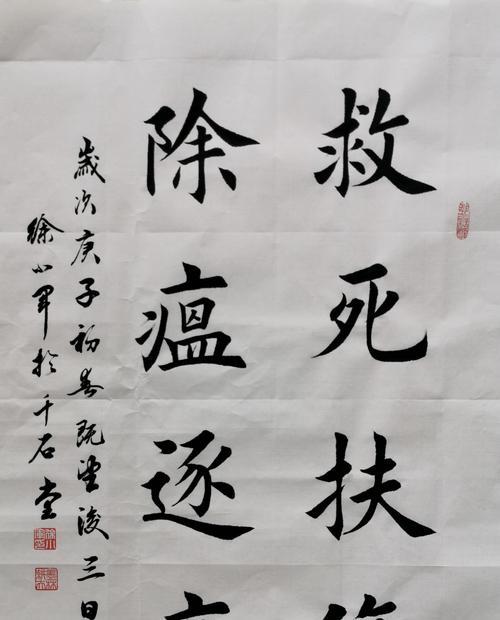 救死扶
除瘟逐
歲次庚子初春既望後三日
徐小軍於千石堂